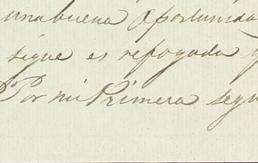 una buena oportunida
sigue es refogada
Por mi Primera segu